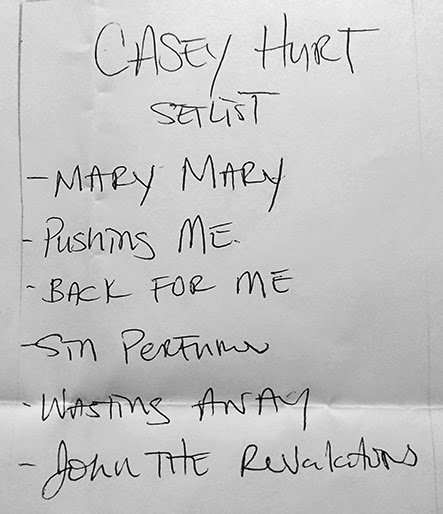 CASEY HURT
SETLIST
- MARY MARY
- PUSHING ME.
- BACK FOR ME
- SIN PERFUME
- WASTING AWAY
- JOHN THE REVALATIONS